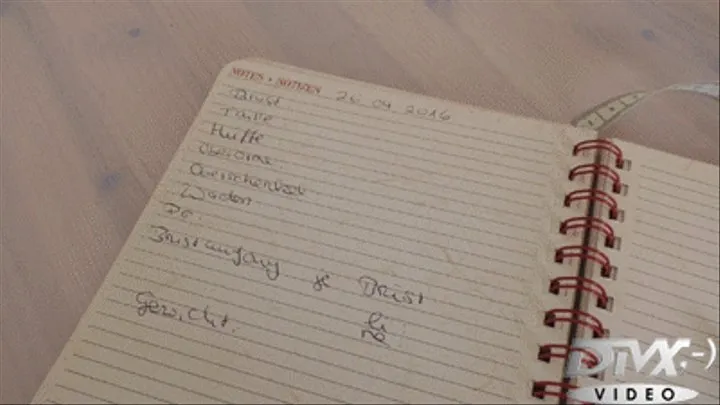 NOTES + NOTIZEN 26 09 2016
Brust
Taille
Hüfte
Oberarme
Oberschenkel
Waden
Po:
Brustumfang je Brust
li
re
Gewicht.
DIVX
VIDEO